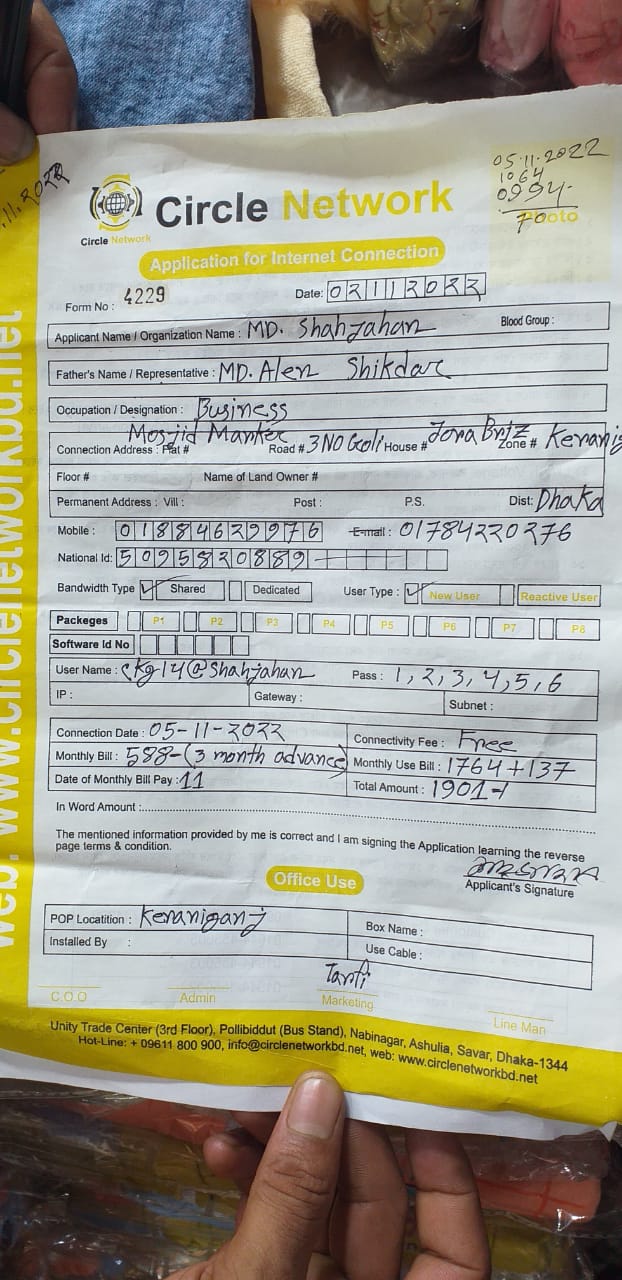 05.11.2022
1064
0994-
70
Photo
.11.2022
Circle Network
Circle Network
Application for Internet Connection
Form No : 4229
Date: 02112022
Applicant Name / Organization Name : MD. Shahjahan Blood Group :
Father's Name / Representative : MD. Alen Shikdar
Occupation / Designation : Business
Connection Address : Flat # Mosjid Market Road # 3 NO Goli House # Zone # Kenanig
Floor # Name of Land Owner #
Permanent Address : Vill : Post : P.S. Dist: Dhaka
Mobile : 01884629976 E-mail : 01784220276
National Id: 5095820889
Bandwidth Type Shared Dedicated User Type : New User Reactive User
Packeges P1 P2 P3 P4 P5 P6 P7 P8
Software Id No
User Name : ckg14@Shahjahan Pass : 1,2,3,4,5,6
IP : Gateway : Subnet :
Connection Date : 05-11-2022 Connectivity Fee : Free
Monthly Bill : 588-(3 month advance) Monthly Use Bill : 1764+137
Date of Monthly Bill Pay : 11 Total Amount : 1901-/
In Word Amount :
The mentioned information provided by me is correct and I am signing the Application learning the reverse
page terms & condition.
Applicant's Signature
Office Use
POP Locatition : Kenaniganj Box Name :
Installed By : Use Cable :
C.O.O Admin Marketing Line Man
Unity Trade Center (3rd Floor), Pollibiddut (Bus Stand), Nabinagar, Ashulia, Savar, Dhaka-1344
Hot-Line: + 09611 800 900, info@circlenetworkbd.net, web: www.circlenetworkbd.net
web: www.circlenetworkbd.net